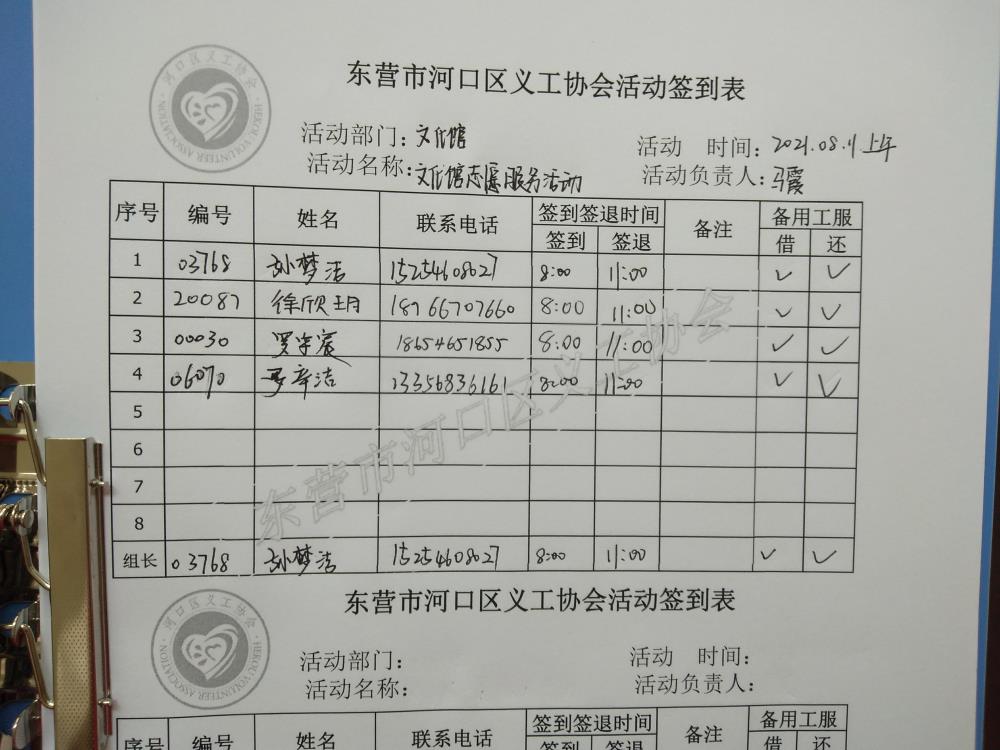 河口区义工协会
HEKOU VOLUNTEER ASSOCIATION
东营市河口区义工协会活动签到表
活动部门：文化馆 活动 时间：2021.08.11上午
活动名称：文化馆志愿服务活动 活动负责人：马霞
序号 编号 姓名 联系电话 签到签退时间 备注 备用工服
签到 签退 借 还
1 03768 孙梦洁 15254608027 8:00 11:00 ✓ ✓
2 20087 徐欣玥 18766707660 8:00 11:00 ✓ ✓
3 00030 罗宇宸 18654651855 8:00 11:00 ✓ ✓
4 06070 洁 13356836161 8:00 11:00 ✓ ✓
5
6
7
8
组长 03768 孙梦洁 15254608027 8:00 11:00 ✓ ✓
东营市河口区义工协会
河口区义工协会
HEKOU VOLUNTEER ASSOCIATION
东营市河口区义工协会活动签到表
活动部门： 活动 时间：
活动名称： 活动负责人：
序号 编号 姓名 联系电话 签到签退时间 备注 备用工服
签到 签退 借 还